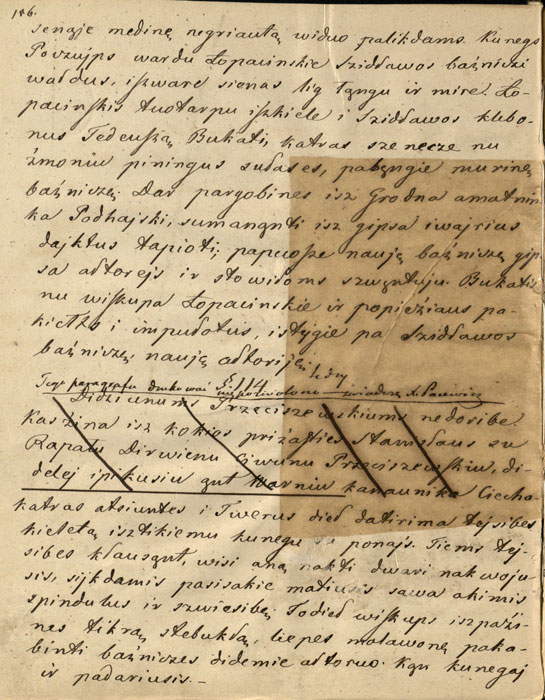 186.
senąję medinę negriautą widuo palikdams. Kunegs
Powzups wardu Łopacinskie Szidławos bażniczi
waldus, iszware sienas lig łąngu ir mire. Ło-
pacinskis tuotarpu iszkiele i Szidławos klebo-
nus Tedeuszą Bukati, katras szenecze nu
żmoniu piningus sudases, pabęngie murinę
bażniczę. Dar pargobines isz Grodna amatnin-
ka Podhajski, sumanąnti isz gipsa iwajrius
dajktus tapioti, papuosze nauję bażniczę gip-
sa adtorejs ir stowidoms szwęntuju. Bukatis
nu wiskupa Łopacinskie ir popieżiaus pa-
kieltas i impudotus, istygie pa Szidławos
bażniczę nauję adtoriję.
Tego paragrafu drukować § 114 niepozwolono
Didziunums Przeciszewskiums nedoribe.
Kaszina isz kokios priżasties Stanisłaus su
Rapału Dirwienu Ciwunu Przeciszewskiu, di-
delej ipikusiu ąnt Warniu kanaunika Ciecha-
katras atsiuntes i Twerus died datirima tejsibes
kieletą isztikiemu kunegu su ponajs. Tiems tej-
sibes klausąnt, wisi aną nakti dwari nakwoju-
sis, sijkdamis pasisakie matiusis sawa akimis
spindulus ir szwiesibę. Todieł wiskups iszpaži-
nes tikrą stebukłą, liepes maławonę paka-
binti bażniczes didemie adtoruo. Kąn kunegaj
ir padariusis. —